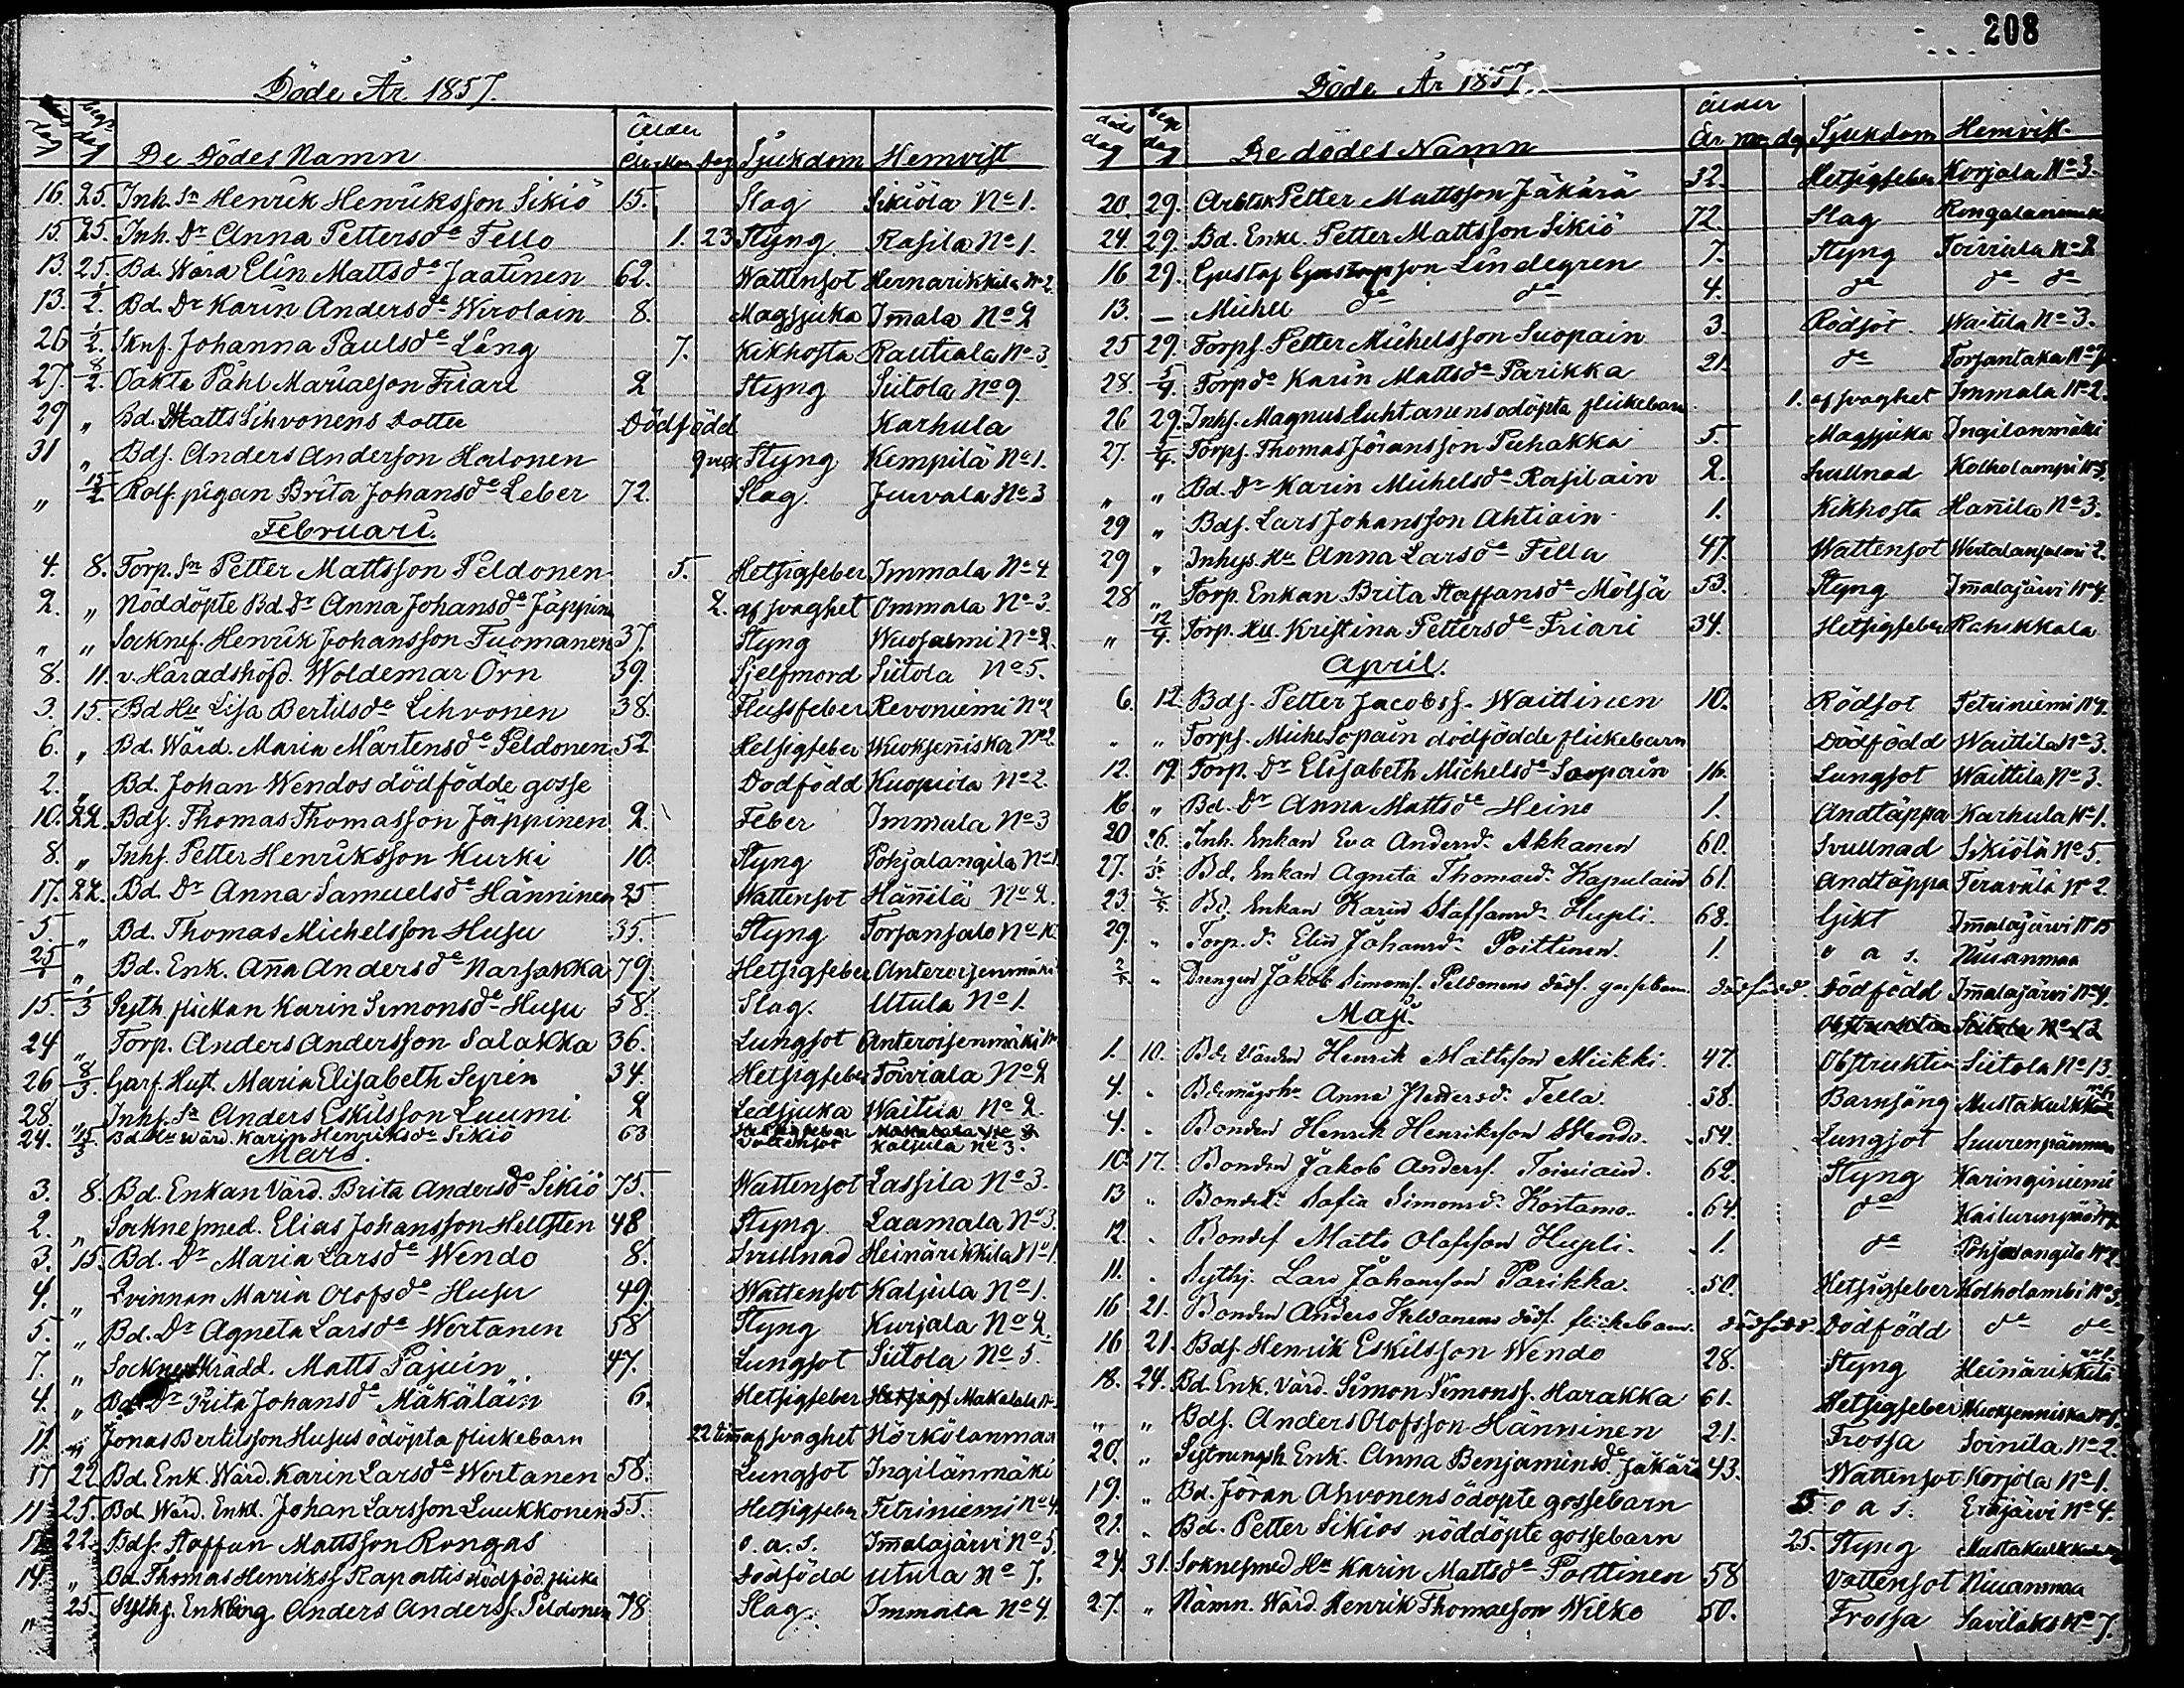 208
Döde År 1857.
döds dag begr. dag De Dödes Namn Ålder År Mon Dag Sjukdom Hemvist
16. 25. Inh. Sn Henrik Henriksson Sikiö 15. Slag Sikiölä No 1.
15. 25. Inh. Dr Anna Pettersdr Tello 1. 23 Styng Rasila No 1.
13. 25. Bd. Wärd Elin Mattsdr Jaatinen 62. Wattensot Hernärikkilä No 2.
13. 1/2. Bd. Dr Karin Andersdr Wirolain 8. Magsjuka Im̄ala No 2
26 1/2. Sknf. Johanna Paulsdr Lång 7. Kikhosta Rautiala No 3.
27. 8/2. Oäkta Påhl Mariaeson Friari 2 Styng Siitola No 9
29 " Bd. Matts Sihvonens Dotter Dödfödd Karhula
31 " Bds. Anders Anderson Halonen 9 Styng Kempilä No 1.
" 15/2 Rotf. pigan Brita Johansdr Leber 72. Slag. Juvala No 3
Februari.
4. 8. Torp. Sn Petter Mattsson Peldonen 5. Hetsigfeber Immala No 4.
2. " Nöddöpte Bd. Dr Anna Johansdr Jäppinen 2. af svaghet Ommala No 3.
" " Socknef. Henrik Johansson Tuomanen 37. Styng Wuosalmi No 2.
8. 11. v. Häradshöfd. Woldemar Örn 39. Sjelfmord Siitola No 5.
3. 15. Bd Hu Lisa Bertilsdr Lihvonen 38. Flussfeber Revoniemi No 2
6. " Bd. Wärd. Maria Mårtensdr Peldonen 52. Hetsigfeber Wuoksen̄iska No 2.
2. " Bd. Johan Wendos dödfödde gosse Dödfödd Kuopiila No 2.
10. 22. Bds. Thomas Thomasson Jäppinen 2. Feber Immala No 3
8. " Inhs. Petter Henriksson Kurki 10. Styng Pohjalangila No 1.
17. 22. Bd. Dr Anna Samuelsdr Hänninen 25 Wattensot Hän̄ilä No 2.
5 " Bd. Thomas Michelsson Husu 35. Styng Torsansalo No
25/1 " Bd. Enk. An̄a Andersdr Narsakka 79. Hetsigfeber Anteroisenmäki
15. 1/3 Syth. flickan Karin Simonsdr Husu 58. Slag. Utula No 1.
24 " Torp. Anders Andersson Salakka 36. Lungsot Anteroisenmäki
26 8/3. Garf. Hust. Maria Elisabeth Syrén 34. Hetsigfeber Toiviala No 2
28. " Inhs. Sn Anders Eskilsson Luumi 2 Ledsjuka Waitila No 2.
24. 15/3 Bd. Hu Wärd. Karin Henriksdr Sikiö 63 Vattensot Kaljula No 3.
Mars.
3. 8. Bd. Enkan Värd. Brita Andersdr Sikiö 75. Wattensot Lassila No 3.
2. " Socknesmed. Elias Johansson Hellsten 48 Styng Laamala No 3.
3. 15. Bd. Dr Maria Larsdr Wendo 8. Svullnad Heinärikkilä No 1.
4. " Qvinnan Maria Olofsdr Husu 49. Wattensot Kaljula No 1.
5. " Bd. Dr Agneta Larsdr Wertanen 58 Styng Kurjala No 2.
7. " Socknes Skrädd. Matts Pajuin 47. Lungsot Siitola No 5.
4. " Bd. Dr Brita Johansdr Mäkäläin 6. Hetsigfeber Mäkälälä
11. " Jonas Bertilsson Husus odöpta flickebarn 22 tim̄ af svaghet Hörkölanmaa
17 22 Bd. Enk. Wärd. Karin Larsdr Wertanen 58. Lungsot Ingilänmäki
11 25. Bd. Wärd. Enkl. Johan Larsson Luukkonen 55. Hetsigfeber Tetriniemi No 4
17 22. Bds. Staffan Mattsson Rongas o. a. s. Im̄alajärvi No 5.
14. " Bd. Thomas Henrikss Rapattis dödföd. flicka Dödfödd Utula No 7.
" 25 Syths. Enkling Anders Anderss. Peldonen 78 Slag. Immala No 4.
Döde År 1857.
döds dag begr dag De dödes Namn Ålder År mon dag Sjukdom Hemvist.
20. 29. Arbtsk Petter Mattsson Jäkärä 32. Hetsigfeber Korjala No 3.
24. 29. Bd. Enkl. Petter Mattsson Sikiö 72. Slag
16 29. Gustaf Gustafsson Lindegren 7. Styng Toiviala No 2
13. — Michel do do 4. do do do
25 29. Torps. Petter Michelsson Suopain 3. Rödsot Waitila No 3.
28. 5/4. Torp dr Karin Mattsdr Parikka 21. do Torsantaka No
26 29. Inhs. Magnus Luhtanens odöpta flickebarn 1. af svaghet Immala No 2.
27. 5/4. Torps. Thomas Jöransson Puhakka 5. Magsjuka Ingilänmäki
" " Bd. Dr Karin Michelsdr Rasilain 2. Svullnad Kolholampi No 3.
29 " Bds. Lars Johansson Ahtiain 1. Kikhosta Han̄ila No 3.
29 " Inhys. Hu Anna Larsdr Tella 47. Wattensot 2.
28 " Torp. Enkan Brita Staffansdr Mölsä 53. Styng Im̄alajärvi No 4.
" 12/4. Torp. Hu Kristina Pettersdr Friari 34. Hetsigfeber Rahikkala
April.
6. 12. Bds. Petter Jacobss. Waittinen 10. Rödsot Tetriniemi No 9.
" " Torps. Michel Sopain dödfödde flickebarn Dödfödd Waitila No 3.
12. 19. Torp. Dr Elisabeth Michelsdr Soopain 16. Lungsot Waittila No 3.
16. " Bd. Dr Anna Mattsdr Heino 1. Andtäppa Karhula No 1.
20 26. Inh. Enkan Eva Andersd. Akkanen 60. Svullnad Sikiölä No 5.
27. Bd. Enkan Agneta Thomasd. Kapulain 61. Andtäppa Terävälä No 2.
23. Bd. Enkan Karin Staffansd. Hupli. 68. Gikt Im̄alajärvi No 15
29. " Torp. d. Elin Johansd. Poittinen. 1. o a s. Niuanmaa
" Drengen Jakob Simonss. Peldonens dödf. gossebarn. dödfödd. Dödfödd Im̄alajärvi No 4.
Maji.
Obstruktion Siitola No 13
1. 10. Bd. Värden Henrik Mattsson Miikki. 47. Obstruktion Siitola No 13.
4. " Bdemågshu Anna Pettersd. Tella. 38. Barnsäng Mustakulkkula
4. " Bonden Henrik Henriksson Wendo. 54. Lungsot Suurenpänmaa
10. 17. Bonden Jakob Anderss. Toiviain. 62. Styng Karinginiemi
13 " Bondd. Sofia Simonsd. Kortamo. 64. do
12. " Bondes Matts Olofsson Hupli. 1. do Pohjalangila No 2.
11. " Sythj. Lars Johansson Parikka. 50. Hetsigfeber Kolholambi No 3.
16 21. Bonden Anders Peldanens dödf. flickebarn. dödfödd. Dödfödd do do
16 21. Bds. Henrik Eskilsson Wendo 28. Styng Heinärikkilä No 1.
18. 24. Bd. Enk. Värd. Simon Simonss. Harakka 61. Hetsigfeber Wuoksenniska No 1.
" " Bds. Anders Olofsson Hänninen 21. Frossa Soinila No 2.
20. " Sytningsh. Enk. Anna Benjaminsdr Jäkärä 43. Wattensot Korjola No 1.
19. " Bd. Jöran Ahvonens ödöpte gossebarn 5. o a s. Eräjärvi No 4.
21. " Bd. Petter Sikiös nöddöpte gossebarn 25. Styng
24. 31. Soknesmed Hu Karin Mattsdr Poittinen 58 Vattensot Niuanmaa
27. " Nämn. Wärd. Henrik Thomasson Wilko 50. Frossa Savilaks No 7.